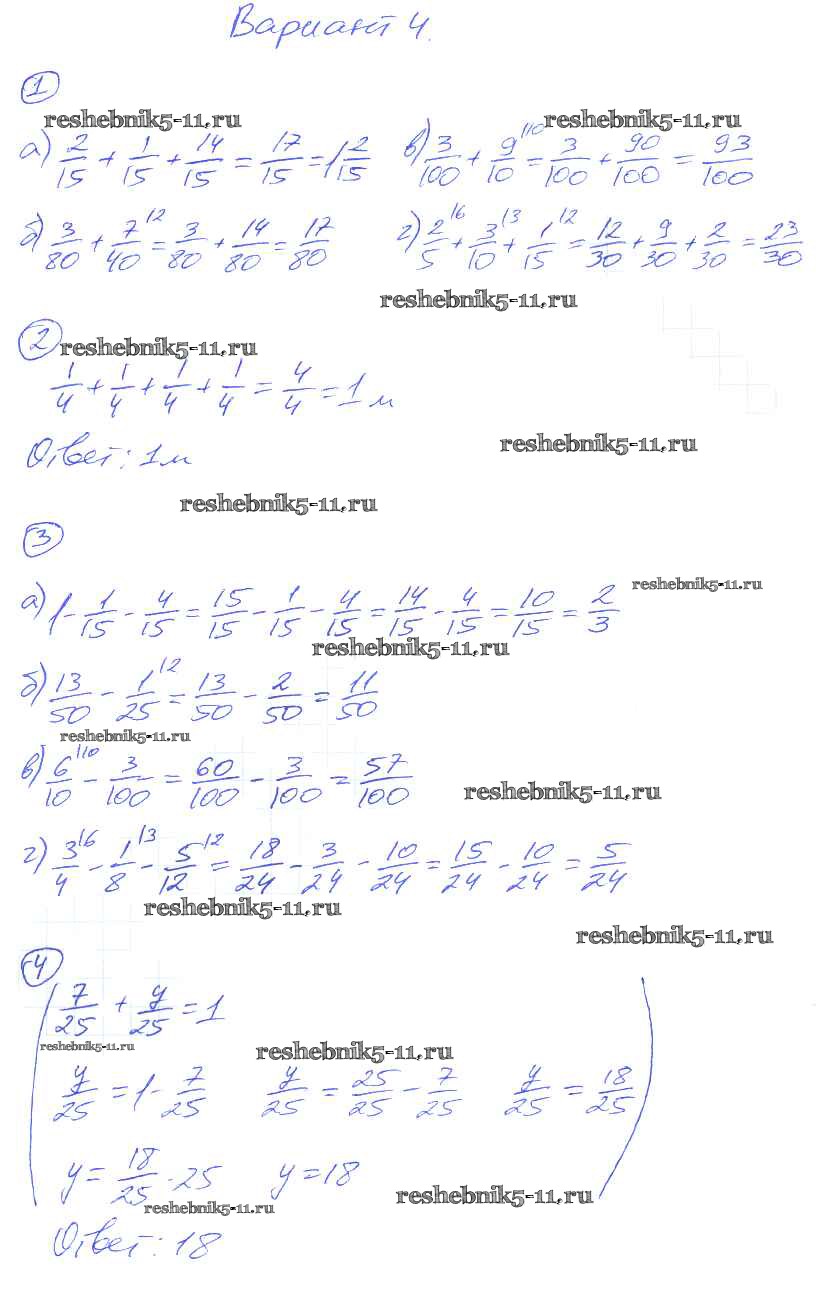 Вариант 4.
1
reshebnik5-11.ru reshebnik5-11.ru
а) 2/15 + 1/15 + 14/15 = 17/15 = 1 2/15 в) 3/100 + 9/10 |10 = 3/100 + 90/100 = 93/100
б) 3/80 + 7/40 |2 = 3/80 + 14/80 = 17/80 г) 2/5 |6 + 3/10 |3 + 1/15 |2 = 12/30 + 9/30 + 2/30 = 23/30
reshebnik5-11.ru
2
reshebnik5-11.ru
1/4 + 1/4 + 1/4 + 1/4 = 4/4 = 1 м
reshebnik5-11.ru
Ответ: 1м
reshebnik5-11.ru
3
reshebnik5-11.ru
а) 1 - 1/15 - 4/15 = 15/15 - 1/15 - 4/15 = 14/15 - 4/15 = 10/15 = 2/3
reshebnik5-11.ru
б) 13/50 - 1/25 |2 = 13/50 - 2/50 = 11/50
reshebnik5-11.ru
в) 6/10 |10 - 3/100 = 60/100 - 3/100 = 57/100
reshebnik5-11.ru
г) 3/4 |6 - 1/8 |3 - 5/12 |2 = 18/24 - 3/24 - 10/24 = 15/24 - 10/24 = 5/24
reshebnik5-11.ru
reshebnik5-11.ru
4
7/25 + y/25 = 1
reshebnik5-11.ru
reshebnik5-11.ru
y/25 = 1 - 7/25 y/25 = 25/25 - 7/25 y/25 = 18/25
y = 18/25 · 25 y = 18
reshebnik5-11.ru
reshebnik5-11.ru
Ответ: 18